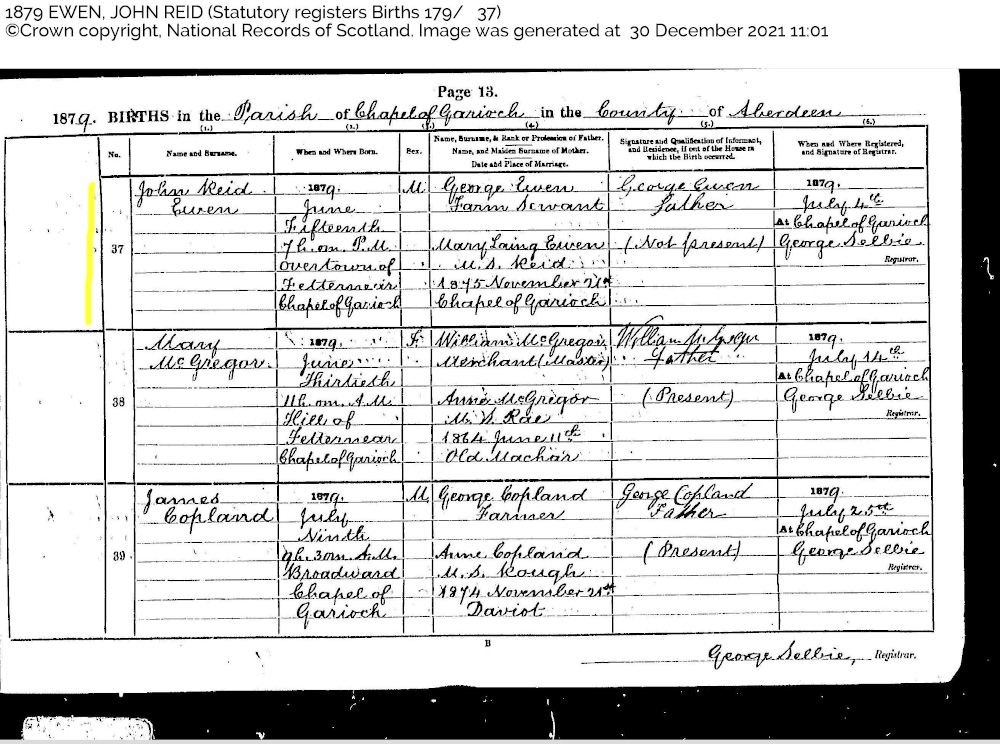 1879 EWEN, JOHN REID (Statutory registers Births 179/ 37)
©Crown copyright, National Records of Scotland. Image was generated at 30 December 2021 11:01
Page 13.
1879. BIRTHS in the Parish of Chapel of Garioch in the County of Aberdeen
(1.) (2.) (3.) (4.) (5.) (6.)
No.
Name and Surname.
When and Where Born.
Sex.
Name, Surname, & Rank or Profession of Father.
Name, and Maiden Surname of Mother.
Date and Place of Marriage.
Signature and Qualification of Informant,
and Residence, if out of the House in
which the Birth occurred.
When and Where Registered,
and Signature of Registrar.
37
John Reid
Ewen
1879.
June
Fifteenth
7h. om. P.M.
Overtown of
Fetternear
Chapel of Garioch
M.
George Ewen
Farm Servant
Mary Laing Ewen
M.S. Reid
1875 November 21st
Chapel of Garioch
George Ewen
Father
(Not present)
1879.
July 4th
At Chapel of Garioch
George Selbie
Registrar.
38
Mary
McGregor
1879.
June
Thirtieth
11h. om. A.M.
Hill of
Fetternear
Chapel of Garioch
F.
William McGregor
Merchant (Master)
Annie McGregor
M.S. Rae
1864 June 11th
Old Machar
William McGregor
Father
(Present)
1879.
July 14th
At Chapel of Garioch
George Selbie
Registrar.
39
James
Copland
1879.
July
Ninth
9h. 30m. A.M.
Broadward
Chapel of
Garioch
M.
George Copland
Farmer
Anne Copland
M.S. Rough
1874 November 21st
Daviot
George Copland
Father
(Present)
1879.
July 25th
At Chapel of Garioch
George Selbie
Registrar.
B
George Selbie, Registrar.